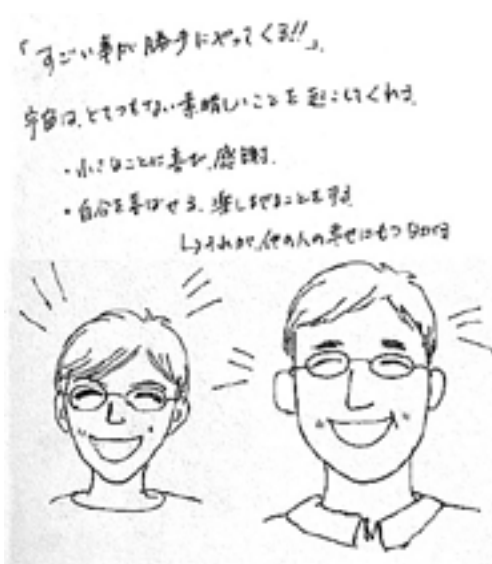 「すごい事が勝手にやってくる!!」。
宇宙は、とてつもない素晴しいことを起こしてくれる。
・小さなことに喜び、感謝。
・自分を喜ばせる、楽しませることをする
↳それが、他の人の幸せにもつながる